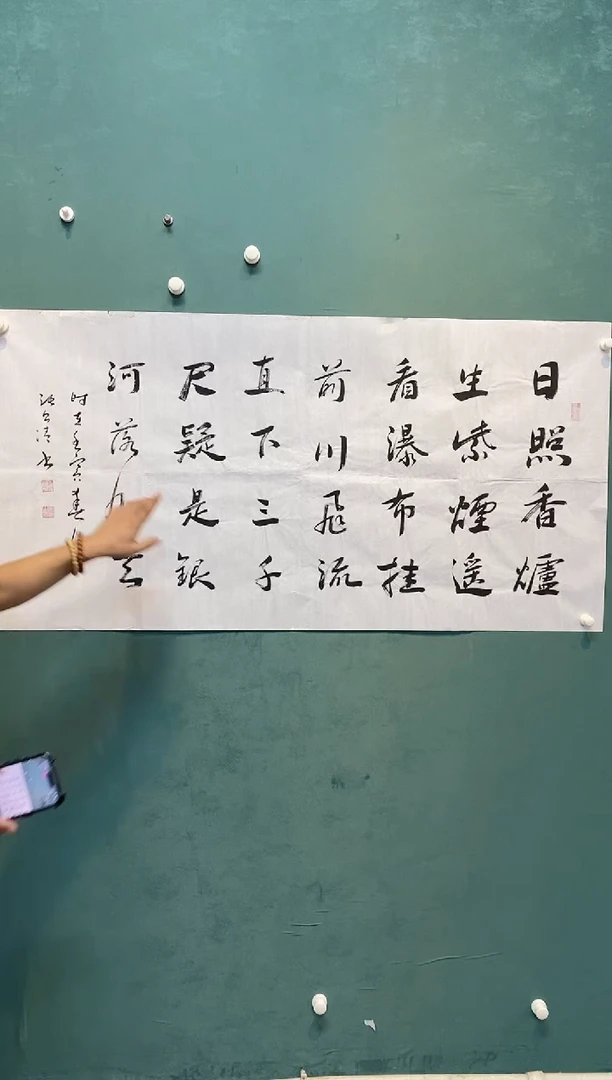 日照香爐
生紫煙遥
看瀑布挂
前川飛流
直下三千
尺疑是銀
河落九天
时在壬寅春